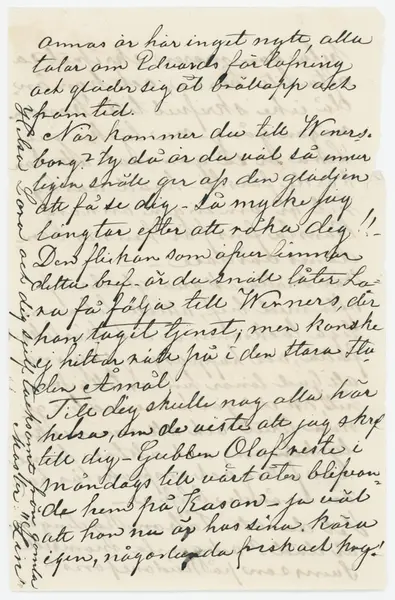 annas är här inget nytt, alla
talar om Edvards förlofning
och gläder sig åt bröllopp och
framtid.
När kommer du till Winers-
borg? Ty då är du väl så inner
ligen snäll ger oss den glädjen
att få se dig – Så mycke jag
längtar efter att råka dig!!
Den flickan som öfver lemnar
detta bref – är du snäll låter Lo-
na få följa till Wenners, der
hon taget tjenst, men kanske
ej hittar rätt på i den stora Sta
den Åmål.
Till dig skulle nog alla här
helsa, om de visste att jag skref
till dig – Gubben Olof reste i
måndags till vårt åter blifvan-
de hem på Kasen – ja väl
att han nu är hos sina kära
igen, någorlunda frisk och kry!
Helsa Lona och dig sjelf tacksamt från gamla
Moster Lin